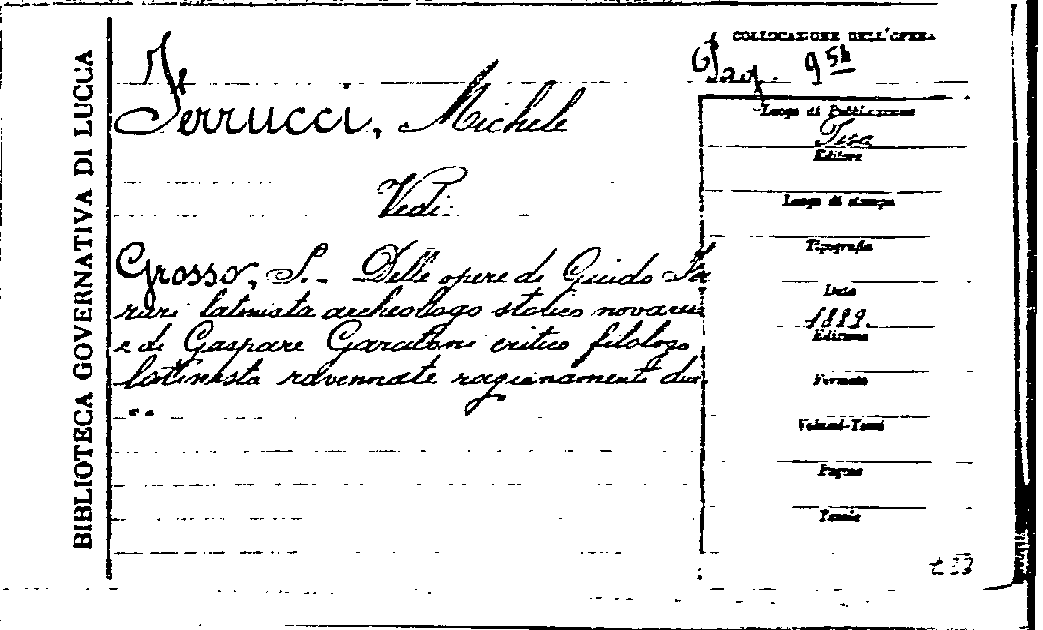 BIBLIOTECA GOVERNATIVA DI LUCCA
COLLOCAZIONE DELL'OPERA
Ferrucci, Michele
Vedi:
Grosso, S. - Delle opere di Guido Fer
rari latinista archeologo storico novarese
e di Gaspare Garatoni critico filologo
latinista ravennate ragionamenti due
..
Luogo di Pubblicazione
Pisa
Editore
Luogo di stampa
Tipografia
Data
1889.
Edizione
Formato
Volumi-Tomi
Pagine
Tavole